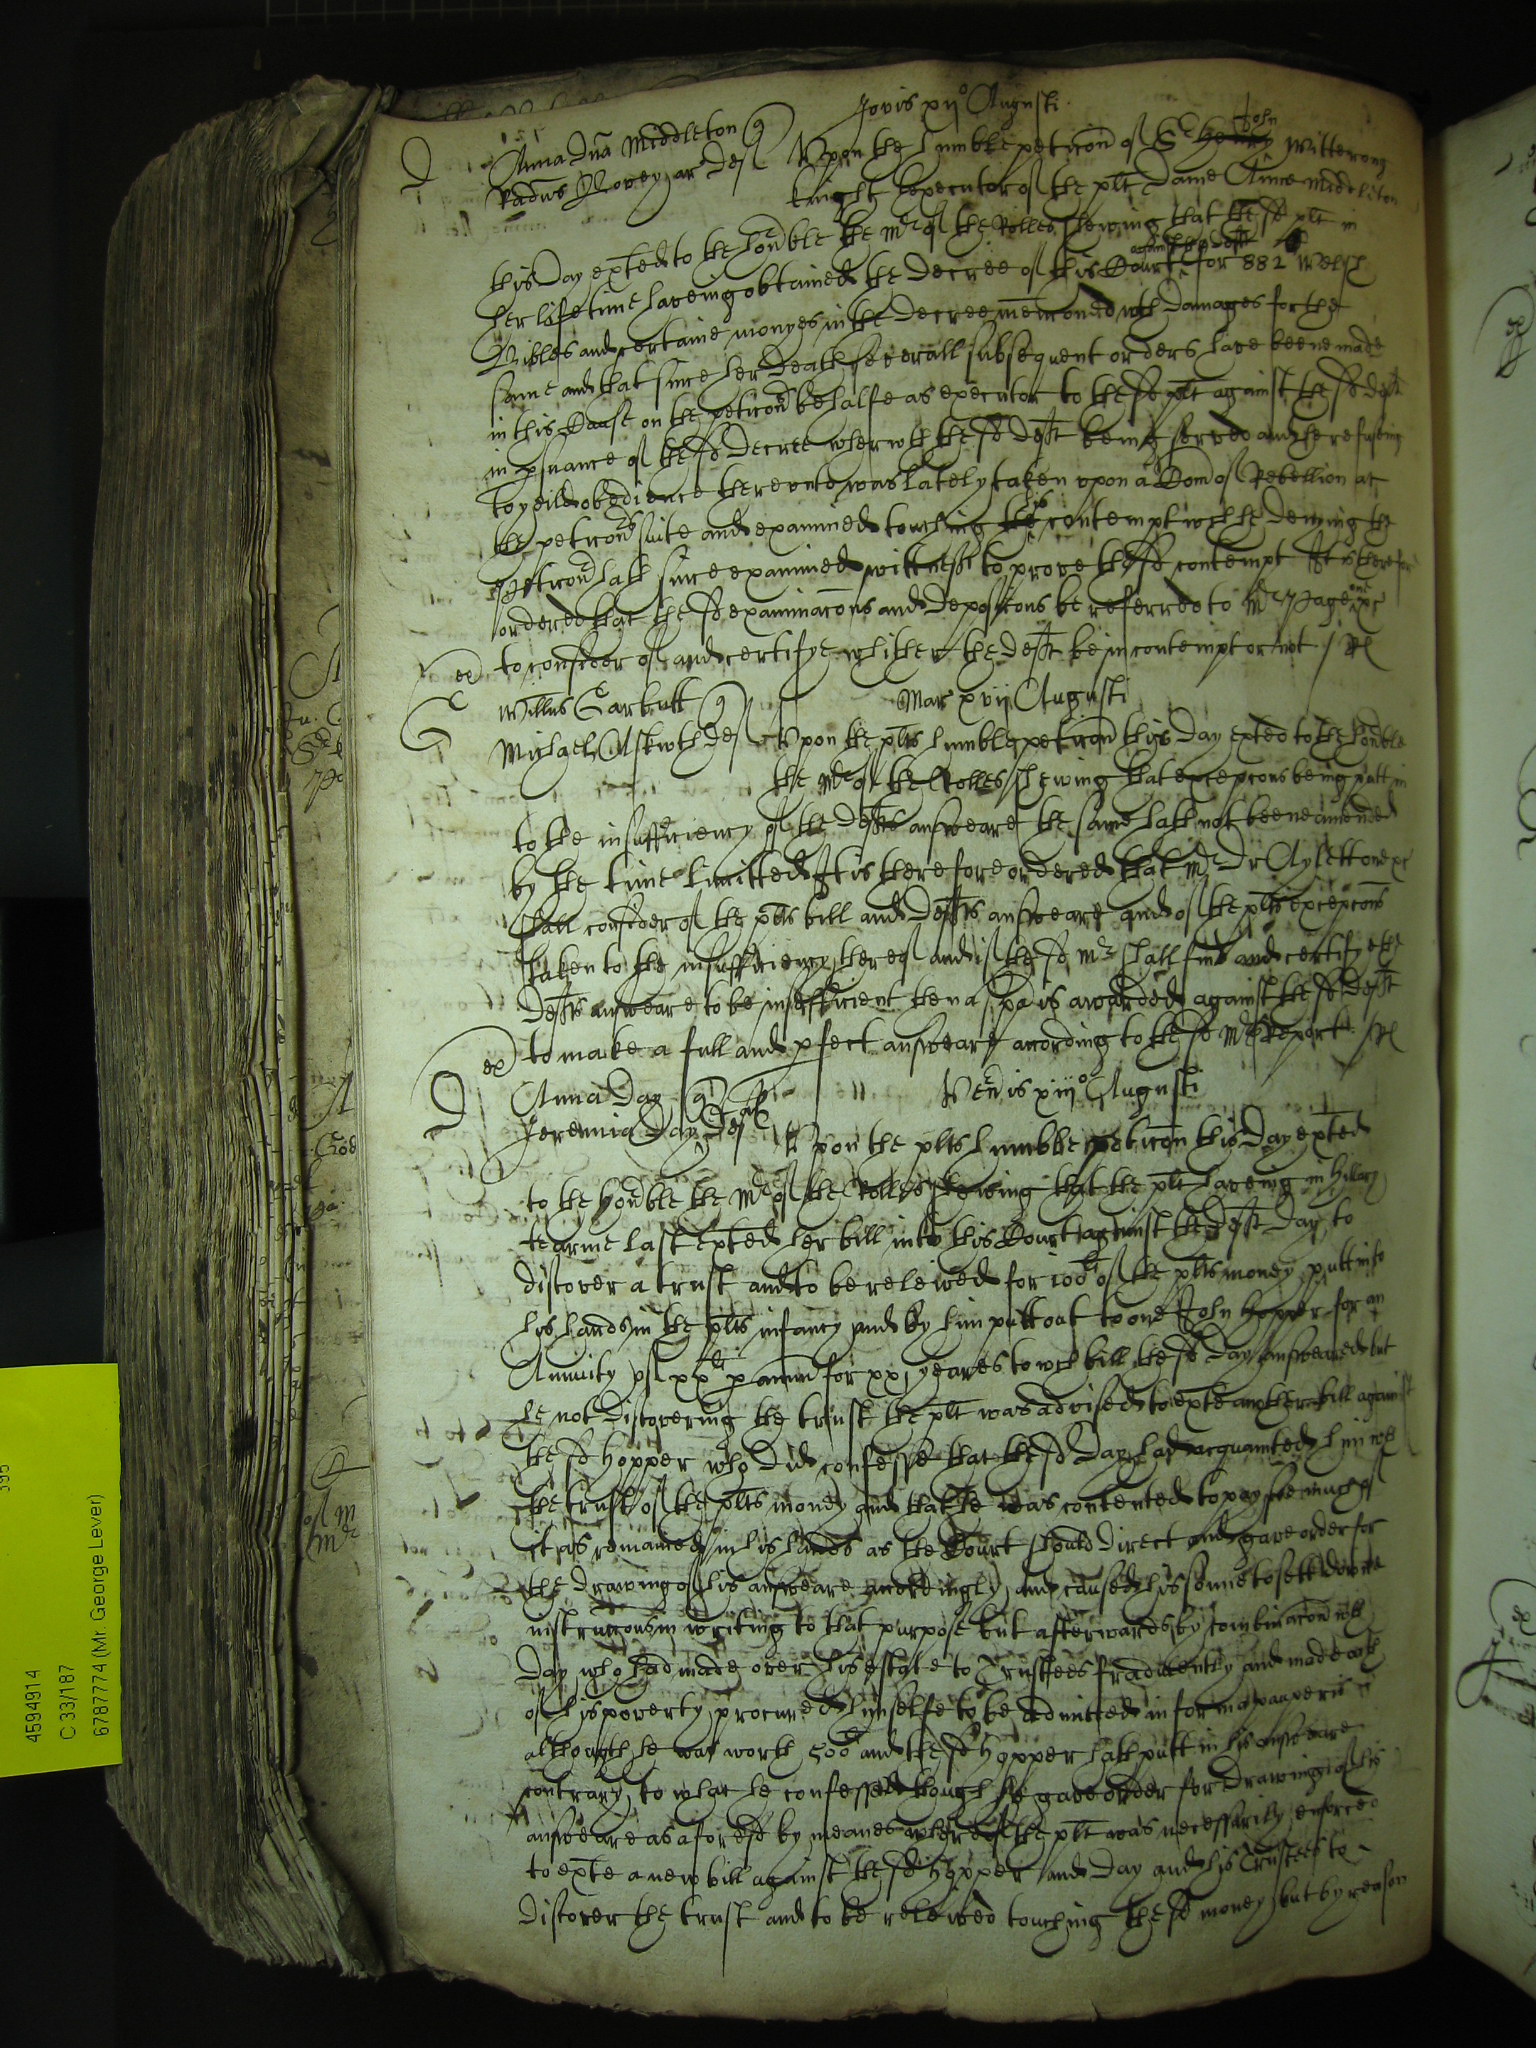 Jovis xijº Augusti
D Anna Dña Middleton q
Radūs Rovey ar deft Upon the humble peticōn of Sr Henry John Witterong
knight executor of the plt Dame Anne Middleton
this day exted to the honble the Mr of the Rolles shewing that the sd plt in
her life time haveing obtained the decree of this Court against the deft for 882 Welsh
Bibles and certaine monyes in the decree mencōned wth damages for the
same and that since her death severall subsequent orders have beene made
in this Cause on the peticonrs behalfe as executor to the sd plt against the sd deft
in psuance of the sd decree wherwth the sd deft being served and he refusing
to yeild obedience therevnto was lately taken vpon a Com of Rebellion at
the peticonrs suite and examined touching the his contempt wch he denying the
peticonr hath since examined wittnesses to prove the sd contempt It is therefore
ordered that the sd examinacōns and deposicōns be referred to Mr Page one &c
to consider of and certifye whither the deft be in contempt or not / Rl
ex
G Willus Garbutt q Mar xvij Augusti
Michael Askwth def Upon the plts humble peticōn this day exted to the honble
the Mr of the Rolles shewing that excepcons being putt in
to the insufficiency of the defts answeare the same hath not beene amended
by the time limitted It is therefore ordered that Mr Dr Aylett one &c
shall consider of the plts bill and defts answeare and of the plts excepcons
taken to the insufficiency thereof and if the sd Mr shall find and certify the
defts answeare to be insufficient then a spa is awarded against the sd deft
to make a full and pfect answeare according to the sd Mrs Report / Rl
ex
D Anna Day q
Jeremia Day & al def Venis xiijº Augusti
Upon the plts humble peticōn this day exted
to the honble the Mr of the Rolles shewing that the plt haveing in Hilary
tearme last exted her bill into this Court against the deft Day to
discover a trust and to be releived for 100li of the plts money putt into
his hands in the plts infancy and by him putt out to one John Hopper for an
Annuity of xxli p annū for xxj yeares to wch bill the sd Day answeared but
he not discovering the trust the plt was advised to exte another bill against
the sd Hopper who did confesse that the sd Day had acquainted him wth
the trust of the plts money and that he was contented to pay soe much of
it as remained in his hands as the Court should direct and gave order for
the drawing of his answeare accordingly and caused his sonne to sett downe
instruccons in writing to that purpose but afterwards by combinacōn wth
Day who had made over his estate to Trustees fradulently and made oath
of his poverty procured himselfe to be admitted in forma pauperis
although he was worth 500li and the sd Hopper hath putt in his answeare
contrary to what he confessed though he gave order for drawing of his
answeare as aforesd by meanes whereof the plt was necessarily enforced
to exte a new bill against the sd Hopper and Day and his Trustees to
discover the trust and to be releived touching the sd money but by reason
4594914
C 33/187
6787774 (Mr. George Lever)